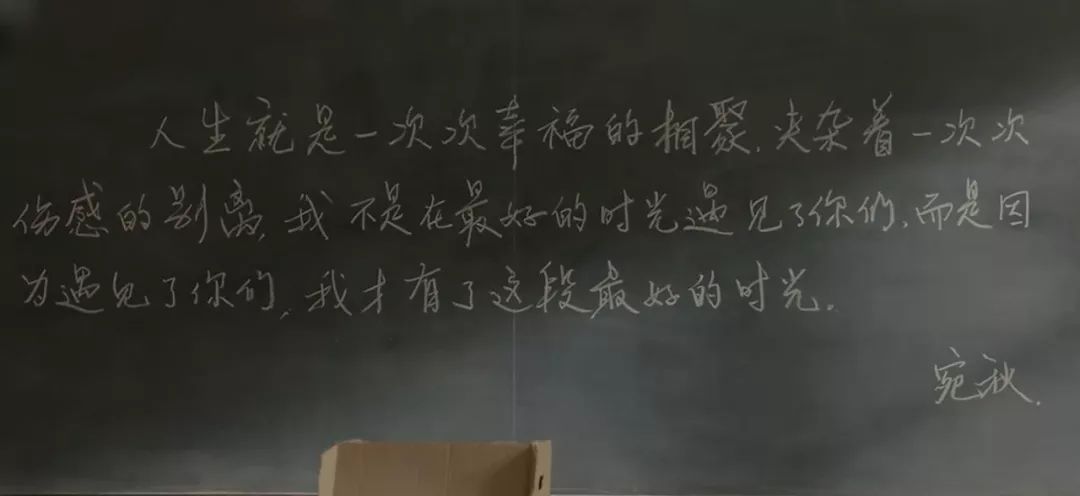 人生就是一次次幸福的相聚,夹杂着一次次
伤感的别离,我不是在最好的时光遇见了你们,而是因
为遇见了你们,我才有了这段最好的时光.
宛秋.